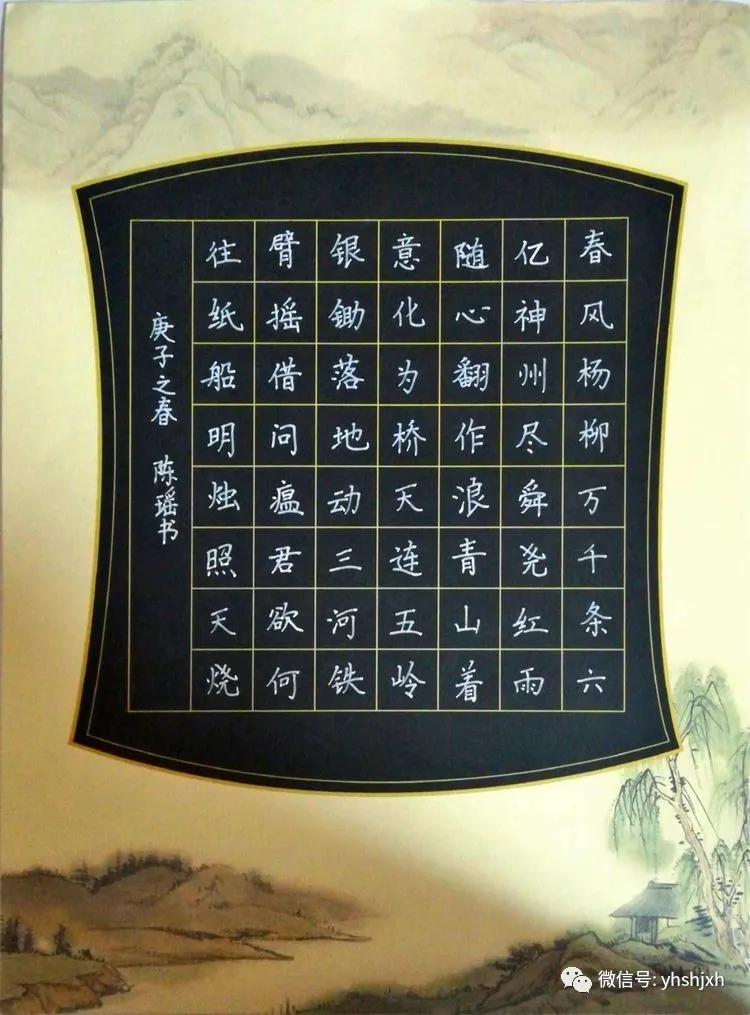 春风杨柳万千条六
亿神州尽舜尧红雨
随心翻作浪青山着
意化为桥天连五岭
银锄落地动三河铁
臂摇借问瘟君欲何
往纸船明烛照天烧
庚子之春 陈瑶书
微信号: yhshjxh